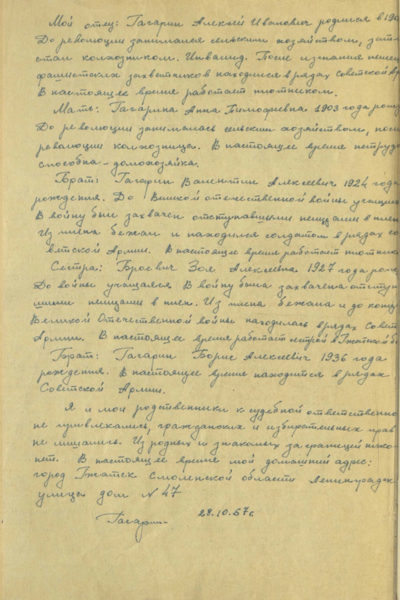 Мой отец: Гагарин Алексей Иванович родился в 190
До революции занимался сельским хозяйством, зате
стал колхозником. Инвалид. После изгнания немец
фашистских захватчиков находился в рядах Советской Ар
В настоящее время работает плотником.
Мать: Гагарина Анна Тимофеевна 1903 года рожд
До революции занималась сельским хозяйством, посл
революции колхозница. В настоящее время нетрудо
способна - домохозяйка.
Брат: Гагарин Валентин Алексеевич 1924 года
рождения. До Великой отечественной войны учащийся
В войну был захвачен отступавшими немцами в плен
Из плена бежал и находился солдатом в рядах Со
ветской Армии. В настоящее время работает плотник
Сестра: Брсевич Зоя Алексеевна 1927 года рожд
До войны учащаяся. В войну была захвачена отступ
шими немцами в плен. Из плена бежала и до конца
Великой Отечественной войны находилась в рядах Совет
Армии. В настоящее время работает сестрой в Гжатской бо
Брат: Гагарин Борис Алексеевич 1936 года
рождения. В настоящее время находится в рядах
Советской Армии.
Я и мои родственники к судебной ответственно
не привлекались, гражданских и избирательных прав
не лишались. Из родных и знакомых за границей нико-
нет. В настоящее время мой домашний адрес:
город Гжатск Смоленской области Ленинградск
улица дом № 47
28.10.57г.
Гагарин